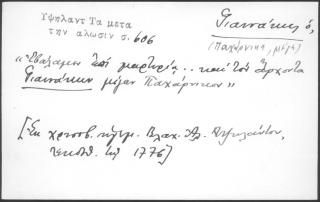 Υψηλαντ Τα μετα
την αλωσιν σ. 606
Γιαννάκης ὁ,
(Παχάρνικος, μέγας)
"Ἐβάλαμεν καὶ μαρτυρία .. καὶ τὸν ἄρχοντα
Γιαννάκην μέγαν Παχάρνικον"
[Ἐκ χρυσοβ. ἡγεμ. Βλαχ. Ἀλ. Ὑψηλάντου,
τοῦ 1776]